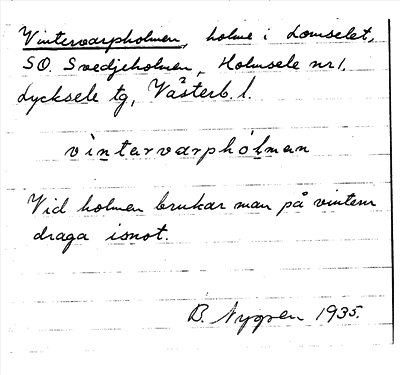 Vintervarpholmen, holme i Lomselet,
SO. Svedjeholmen, Holmsele nr 1,
Lycksele tg, Västerb. l.
vìntarvarphólman
Vid holmen brukar man på vintern
draga isnot.
B. Nygren 1935.